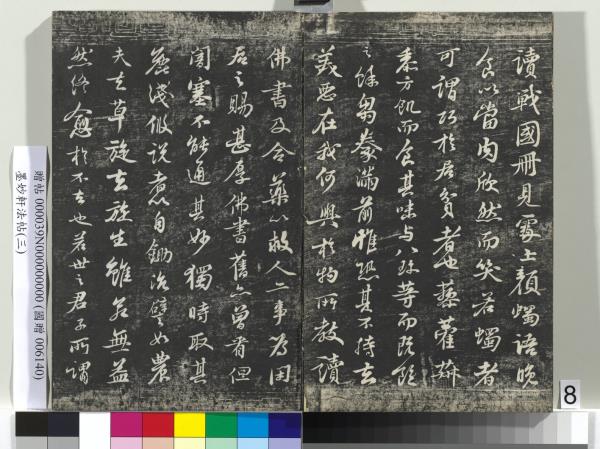 讀戰國冊見處士顏蠋語晚
食以當肉欣然而笑若蠋者
可謂巧於居貧者也藜藿
黍方飢而食其味与八珍等而既飽
之餘芻豢滿前惟恐其不持去
美惡在我何與於物所教讀
佛書及合藥以救人二事為
居之賜甚厚佛書舊亦曾看但
闇塞不能通其妙獨時取其
麄淺假說者以自鋤治譬如農
夫去草旋去旋生雖若無益
然終愈於不去也若世之君子所謂
贈帖 000039N000000000 (國贈 006140)
墨妙軒法帖(三)
8